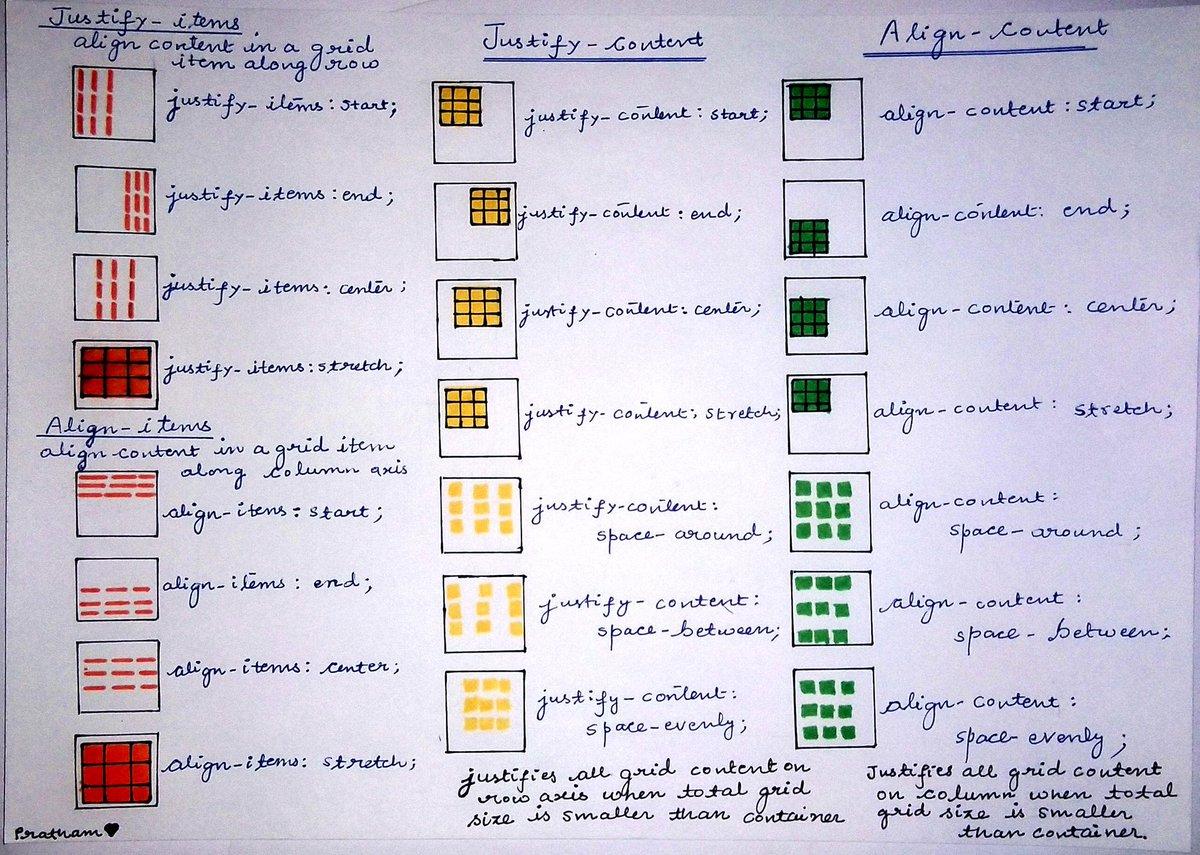 Justify-items
align content in a grid
item along row
justify-items: start;
justify-items: end;
justify-items: center;
justify-items: stretch;
Align-items
align-content in a grid item
along column axis
align-items: start;
align-items: end;
align-items: center;
align-items: stretch;
Pratham
Justify-Content
justify-content: start;
justify-content: end;
justify-content: center;
justify-content: stretch;
justify-content:
space-around;
justify-content:
space-between;
justify-content:
space-evenly;
justifies all grid content on
row axis when total grid
size is smaller than container
Align-Content
align-content: start;
align-content: end;
align-content: center;
align-content: stretch;
align-content:
space-around;
align-content:
space-between;
align-content:
space-evenly;
Justifies all grid content
on column when total
grid size is smaller
than container.